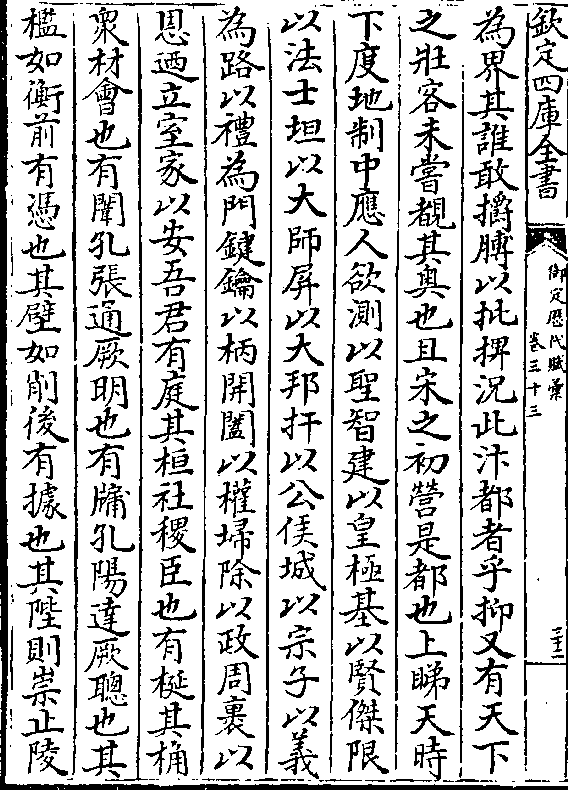 欽定四庫全書
御定歷代賦彙
卷三十三
三十二
為界其誰敢擂膊以批捭況此汴都者乎抑又有天下
之壯客未嘗覩其奥也且宋之初營是都也上睇天時
下度地制中應人欲測以聖智建以皇極基以賢傑限
以法士坦以大師屏以大邦扞以公侯城以宗子以義
為路以禮為門鍵鑰以柄開闔以權埽除以政周裹以
恩迺立室家以安吾君有庭其桓社稷臣也有梴其桷
衆材會也有闈孔張通厥明也有牗孔陽達厥聰也其
檻如衡前有憑也其壁如削後有據也其陛則崇止陵